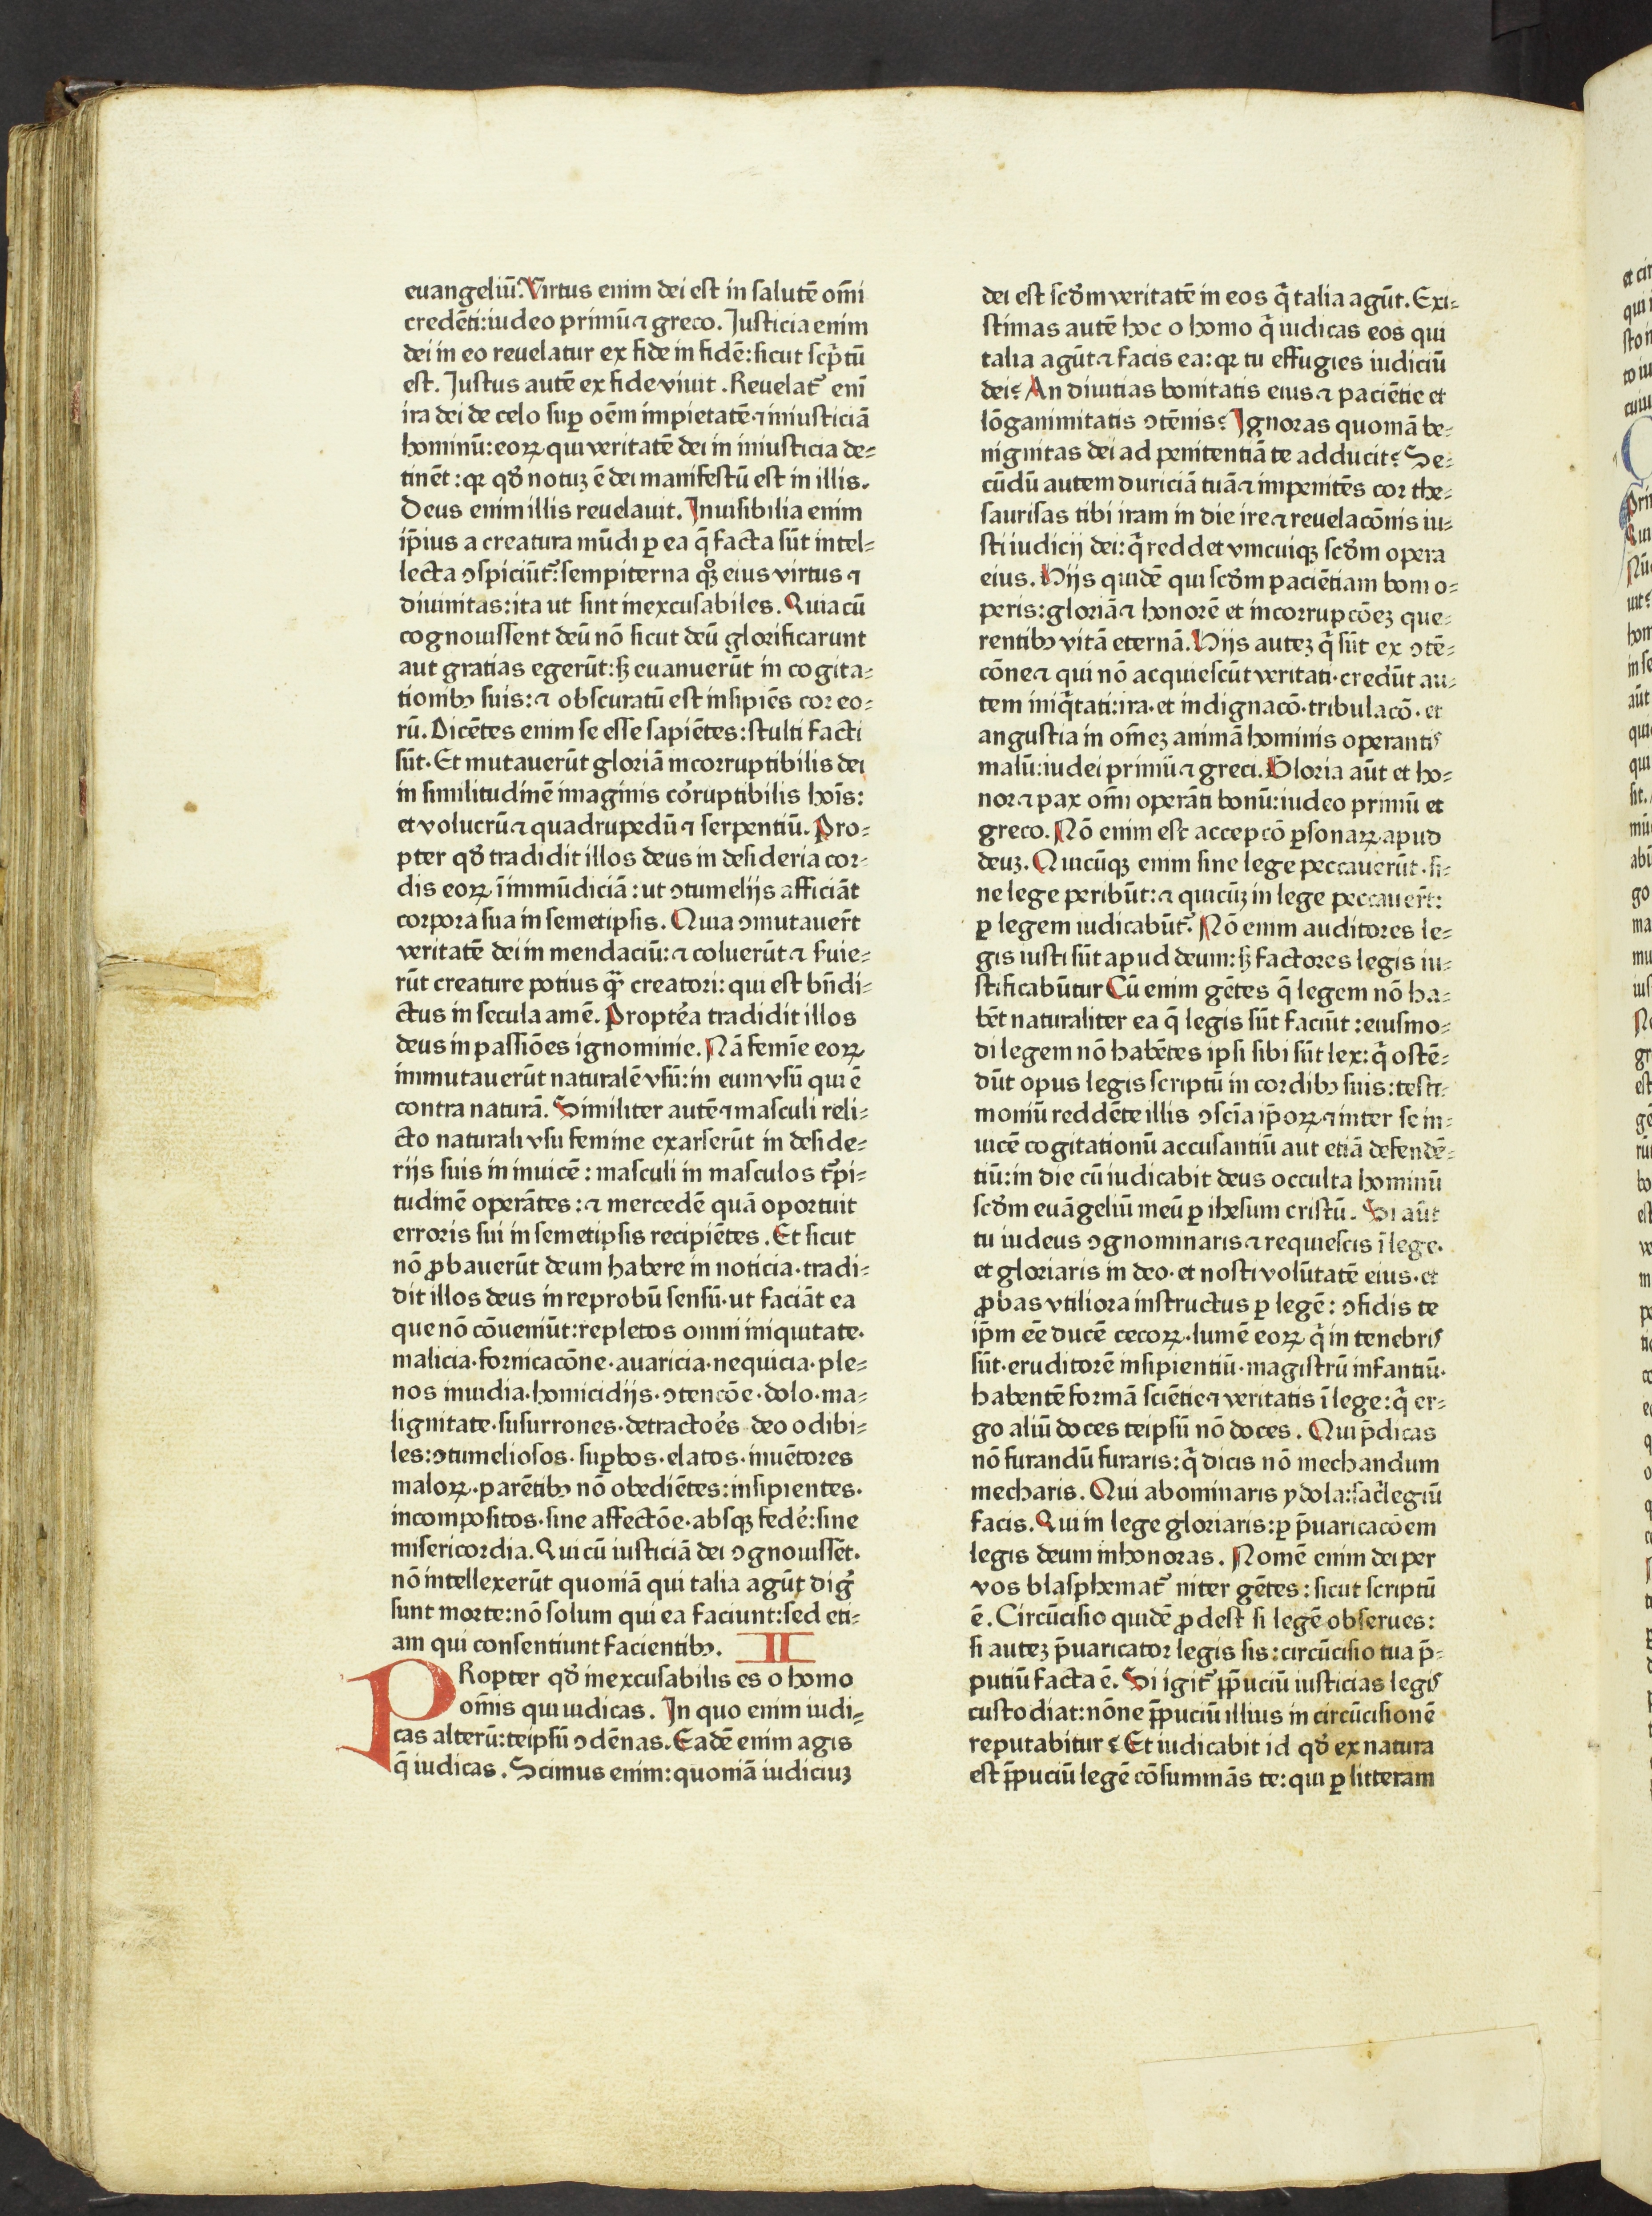 euangeliū. Virtus enim dei est in salutē om̄i
credēti: iudeo primū ⁊ greco. Justicia enim
dei in eo reuelatur ex fide in fidē: sicut scp̄tū
est. Justus autē ex fide viuit. Reuelat᷑ eni
ira dei de celo suꝑ oēm impietatē ⁊ iniusticiā
hominū: eoꝝ qui veritatē dei in iniusticia de⸗
tinēt: qꝛ qd̄ notuꝫ ē dei manifestū est in illis.
Deus enim illis reuelauit. Inuisibilia enim
ip̄ius a creatura mūdi ꝑ ea q̄ facta sūt intel⸗
lecta ꝯspiciūt᷑: sempiterna qꝫ eius virtus ⁊
diuinitas: ita ut sint inexcusabiles. Quia cū
cognouissent deū nō sicut deū glorificarunt
aut gratias egerūt: sꝫ euanuerūt in cogita⸗
tionibꝰ suis: ⁊ obscuratū est insipiēs cor eo⸗
rū. Dicētes enim se esse sapiētes: stulti facti
sūt. Et mutauerūt gloriā incorruptibilis dei
in similitudinē imaginis cor᷑ruptibilis hoīs:
et volucrū ⁊ quadrupedū ⁊ serpentiū. Pro⸗
pter qd̄ tradidit illos deus in desideria cor⸗
dis eoꝝ ī immūdiciā: ut ꝯtumelijs afficiāt
corpora sua in semetipsis. Quia ꝯmutauer̄t
veritatē dei in mendaciū: ⁊ coluerūt ⁊ ẜuie⸗
rūt creature potius q̄ꝫ creatori: qui est bn̄di⸗
ctus in secula amē. Propter᷑a tradidit illos
deus in passiōes ignominie. Nā femīe eoꝝ
immutauerūt naturalē vsū: in eum vsū qui ē
contra naturā. Similiter autē ⁊ masculi reli⸗
cto naturali vsu femine exarserūt in deside⸗
rijs suis in inuicē: masculi in masculos t᷑pi⸗
tudinē operātes: ⁊ mercedē quā oportuit
erroris sui in semetipsis recipiētes. Et sicut
nō ꝓbauerūt deum habere in noticia · tradi⸗
dit illos deus in reprobū sensū · ut faciāt ea
que nō cōueniūt: repletos omni iniquitate ·
malicia · fornicacōne · auaricia · nequicia · ple⸗
nos inuidia · homicidijs · ꝯtencōe · dolo · ma⸗
lignitate · susurrones · detractoēs deo odibi⸗
les: ꝯtumeliosos · suꝑbos · elatos · inuētores
maloꝝ · parētibꝰ nō obediētes: insipientes ·
incompositos · sine affectōe · absqꝫ feder᷑e: sine
misericordia. Qui cū iusticiā dei ꝯgnouissēt ·
nō intellexerūt quoniā qui talia agūt dig᷑
sunt morte: nō solum qui ea faciunt: sed eti⸗
am qui consentiunt facientibꝰ. II
PRopter qd̄ inexcusabilis es o homo
om̄is qui iudicas. In quo enim iudi⸗
cas alterū: teipsū ꝯdēnas. Eadē enim agis
q̄ iudicas. Scimus enim: quoniā iudiciuꝫ
dei est scd̄m veritatē in eos q̄ talia agūt. Exi⸗
stimas autē hoc o homo q̄ iudicas eos qui
talia agūt ⁊ facis ea: qꝛ tu effugies iudiciū
dei? An diuitias bonitatis eius ⁊ paciētie et
lōganimitatis ꝯtēnis? Ignoras quoniā be⸗
nignitas dei ad penitentiā te adducit? Se⸗
cūdū autem duriciā tuā ⁊ impenitēs cor the⸗
saurisas tibi iram in die ire ⁊ reuelacōnis iu⸗
sti iudicij dei: q̄ reddet vnicuiqꝫ scd̄m opera
eius. Hijs quidē qui scd̄m paciētiam boni o⸗
peris: gloriā ⁊ honorē et incorrupcōeꝫ que⸗
rentibꝰ vitā eternā. Hijs auteꝫ q̄ sūt ex ꝯtē⸗
cōne ⁊ qui nō acquiescūt veritati · credūt au⸗
tem iniq̄tati: ira · et indignacō · tribulacō · et
angustia in om̄eꝫ animā hominis operantꝭ
malū: iudei primū ⁊ greci. Gloria aūt et ho⸗
nor ⁊ pax om̄i operāti bonū: iudeo primū et
greco. Nō enim est accepcō ꝑsonaꝝ apud
deuꝫ. Quicūqꝫ enim sine lege peccauerūt · si⸗
ne lege peribūt: ⁊ quicūꝫ in lege peccauer̄t:
ꝑ legem iudicabūt᷑. Nō enim auditores le⸗
gis iusti sūt apud deum: sꝫ factores legis iu⸗
stificabūtur Cū enim gētes q̄ legem nō ha⸗
bēt naturaliter ea q̄ legis sūt faciūt: eiusmo⸗
di legem nō habētes ipsi sibi sūt lex: q̄ ostē⸗
dūt opus legis scriptū in cordibꝰ suis: testi⸗
moniū reddēte illis ꝯsciā ip̄oꝝ ⁊ inter se in⸗
uicē cogitationū accusantiū aut etiā defendē⸗
tiū: in die cū iudicabit deus occulta hominū
scd̄m euāgeliū meū ꝑ ihesum cristū. Si aūt
tu iudeus ꝯgnominaris ⁊ requiescis ī lege ·
et gloriaris in deo · et nosti volūtatē eius · et
ꝓbas vtiliora instructus ꝑ legē: ꝯfidis te
ip̄m eē ducē cecoꝝ · lumē eoꝝ q̄ in tenebrꝭ
sūt · eruditorē insipientiū · magistrū infantiū ·
habentē formā sciētie ⁊ veritatis ī lege: q̄ er⸗
go aliū doces teipsū nō doces. Qui p̄dicas
nō furandū furaris: q̄ dicis nō mechandum
mecharis. Qui abominaris ydola: sac᷑legiū
facis. Qui in lege gloriaris: ꝑ p̄uaricacōem
legis deum inhonoras. Nomē enim dei per
vos blasphemat᷑ niter gētes: sicut scriptū
ē. Circūcisio quidē ꝓdest si legē obserues:
si auteꝫ p̄uaricator legis sis: circūcisio tua p̄⸗
putiū facta ē. Si igit᷑ p̄puciū iusticias legꝭ
custodiat: nōne p̄puciū illius in circūcisionē
reputabitur? Et iudicabit id qd̄ ex natura
est p̄puciū legē cōsummās te: qui ꝑ litteram